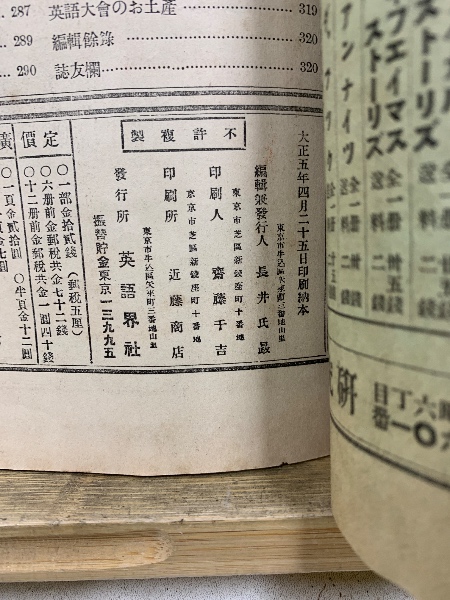 287 英語大會のお土産 319
289 編輯餘錄 320
290 誌友欄 320
不許複製
大正五年四月二十五日印刷納本
東京市牛込區矢來町三番地山里
編輯兼發行人 長井氏晸
東京市芝區新錢座町十番地
印刷人 齋藤千吉
東京市芝區新錢座町十番地
印刷所 近藤商店
東京市牛込區矢來町三番地山里
發行所 英語界社
振替貯金東京一三九九五
定價
○一部金拾貳錢（郵稅五厘）
○六册前金郵稅共金七十二錢
○十二册前金郵稅共金一圓四十錢
廣
○一頁金貳拾圓 ○半頁金十二圓
ストーリズ
フェイマス
ストーリズ
アンナイツ
全一册 卅五錢
送料 二錢
全一册
送料 二錢
研
六丁目